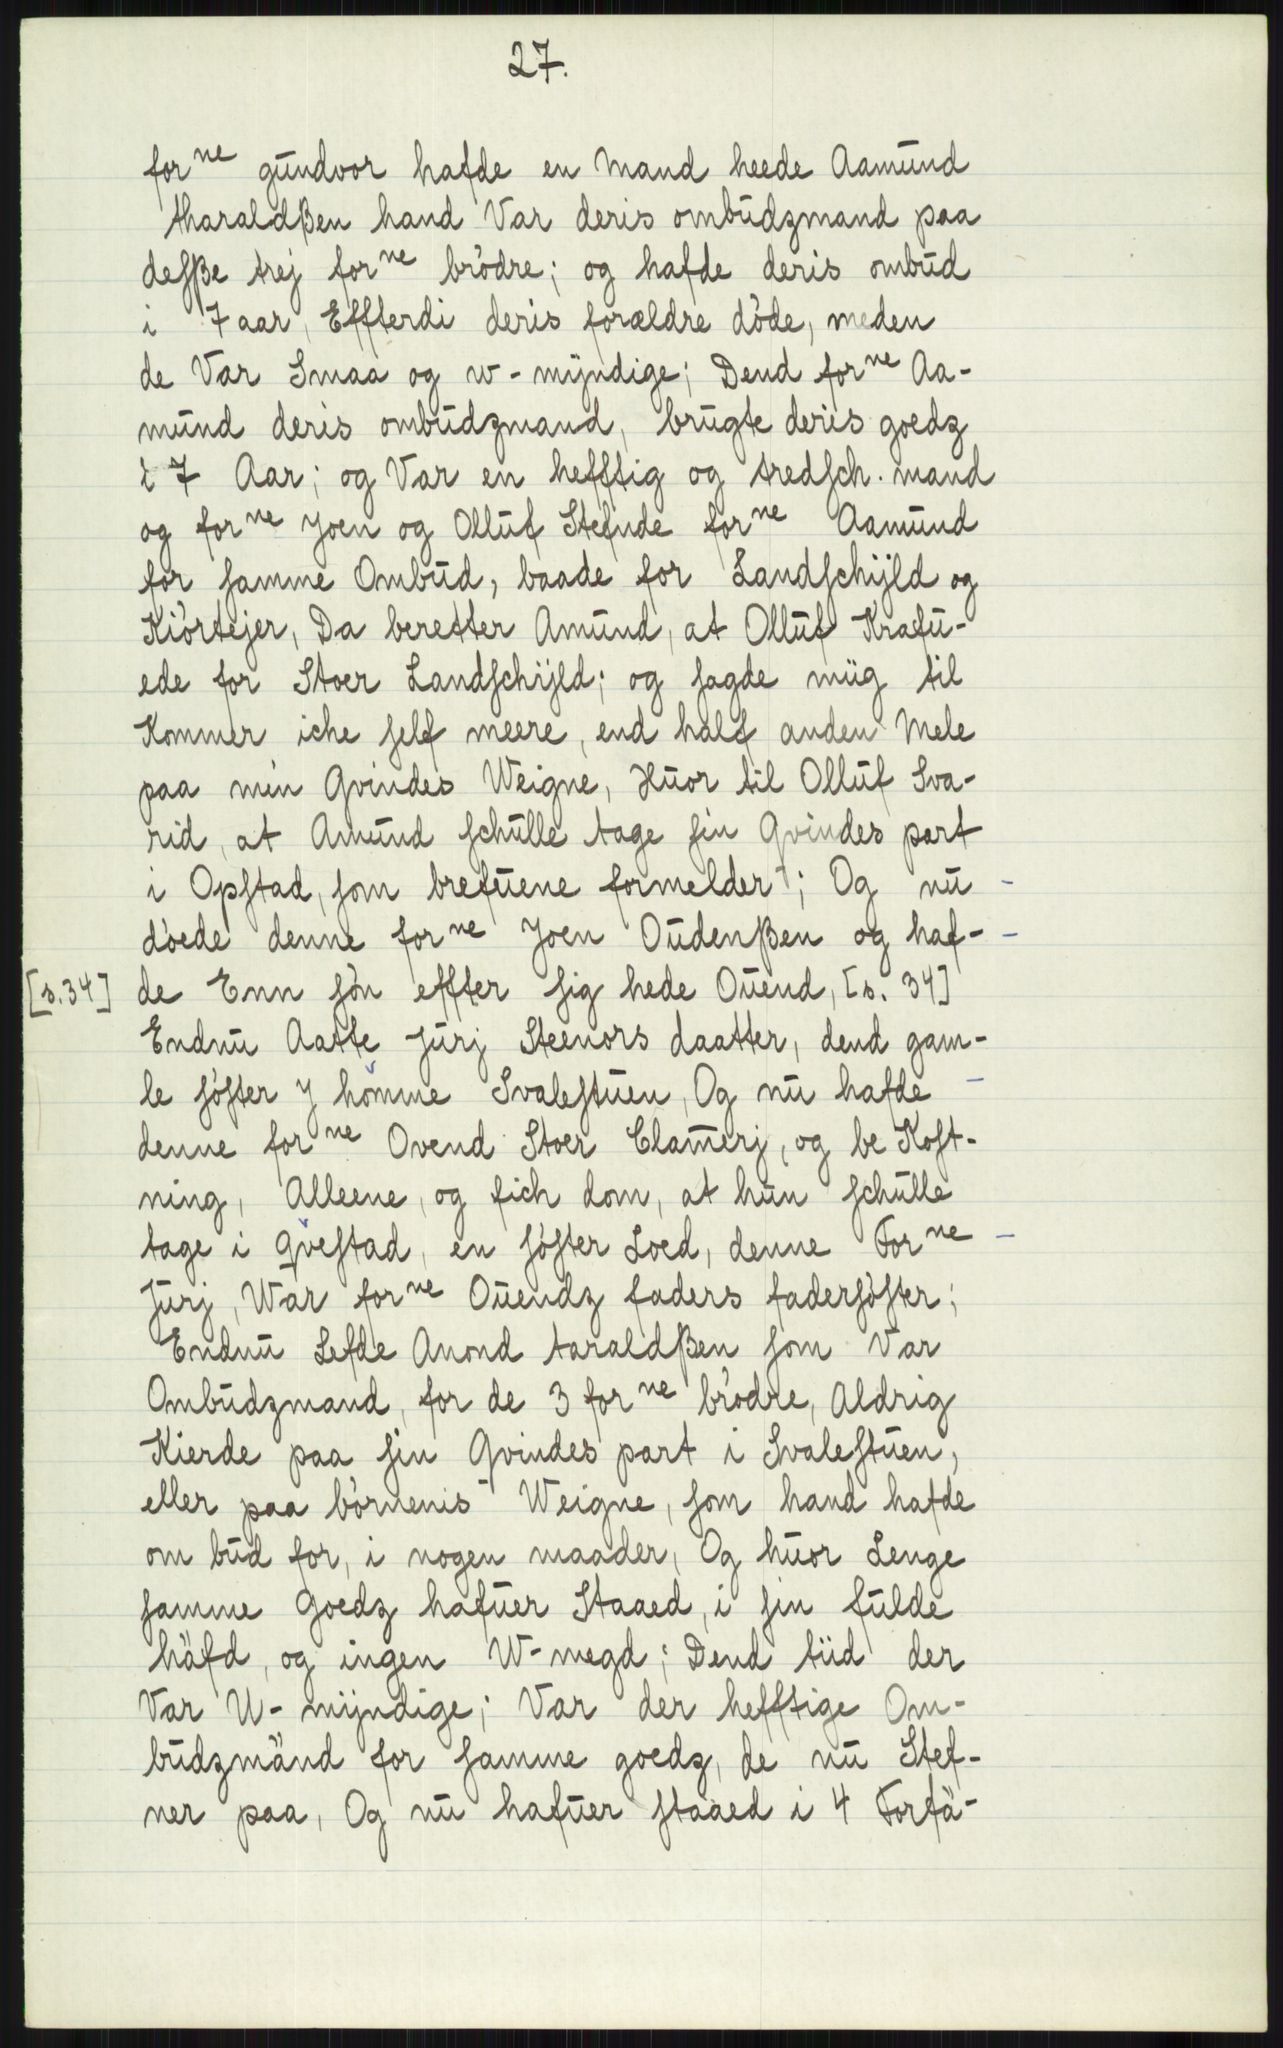 27.
forne gundvor hafde en Mand heede Aamund
tharaldßen hand Var deris ombudzmand paa
desße trej forne brödre; og hafde deris ombud
i 7 aar, Effterdi deris forældre döde, meden
de Var Smaa og w-mÿndige; Dend forne Aa-
mund deris ombudzmand, brugte deris goedz
i 7 Aar; og Var en hefftig og tredsch. mand
og forne Joen og Olluf Stefnde forne Aamund
for samme Ombud, baade for Landschÿld og
Kiörtejer, Da beretter Amund, at Olluf Krafu-
ede for Stoer Landschÿld; og sagde müg til
Kommer iche self meere, end half anden Mele
paa min Qvindes Weigne, Huor til Olluf Sva-
rid, at Amund schulle tage sin Qvindes part
i Opstad, som brefuene formelder; Og nu -
döede denne forne Joen Oudenßen og haf- -
[s.34] de Enn sön effter sig hede Ouend, [s. 34]
Endnu Aatte Jurj Steenors daatter, dend gam-
le söster J hömme Svalestuen, Og nu hafde -
denne forne Ovend Stoer Clamerj, og be Kost-
ning, Alleene, og fich dom, at hun schulle
tage i Qvestad, en söster Loed, denne Forne -
Jurj, War forne Ouendz faders fadersöster;
Endnu Lefde Anond taraldßen som Var
Ombudzmand, for de 3 forne brödre, Aldrig
Kierde paa sin Qvindes part i Svalestuen,
eller paa börnenis Weigne, som hand hafde
om bud for, i nogen maader, Og huor Lenge
samme Goedz hafuer Staaed, i sin fulde
häfd, og ingen W-megd; Dend tüd der
Var U-mÿndige; Var der hefftige Om-
budzmänd for samme goedz, de nu Stef-
ner paa, Og nu hafuer staaed i 4 Forfä-